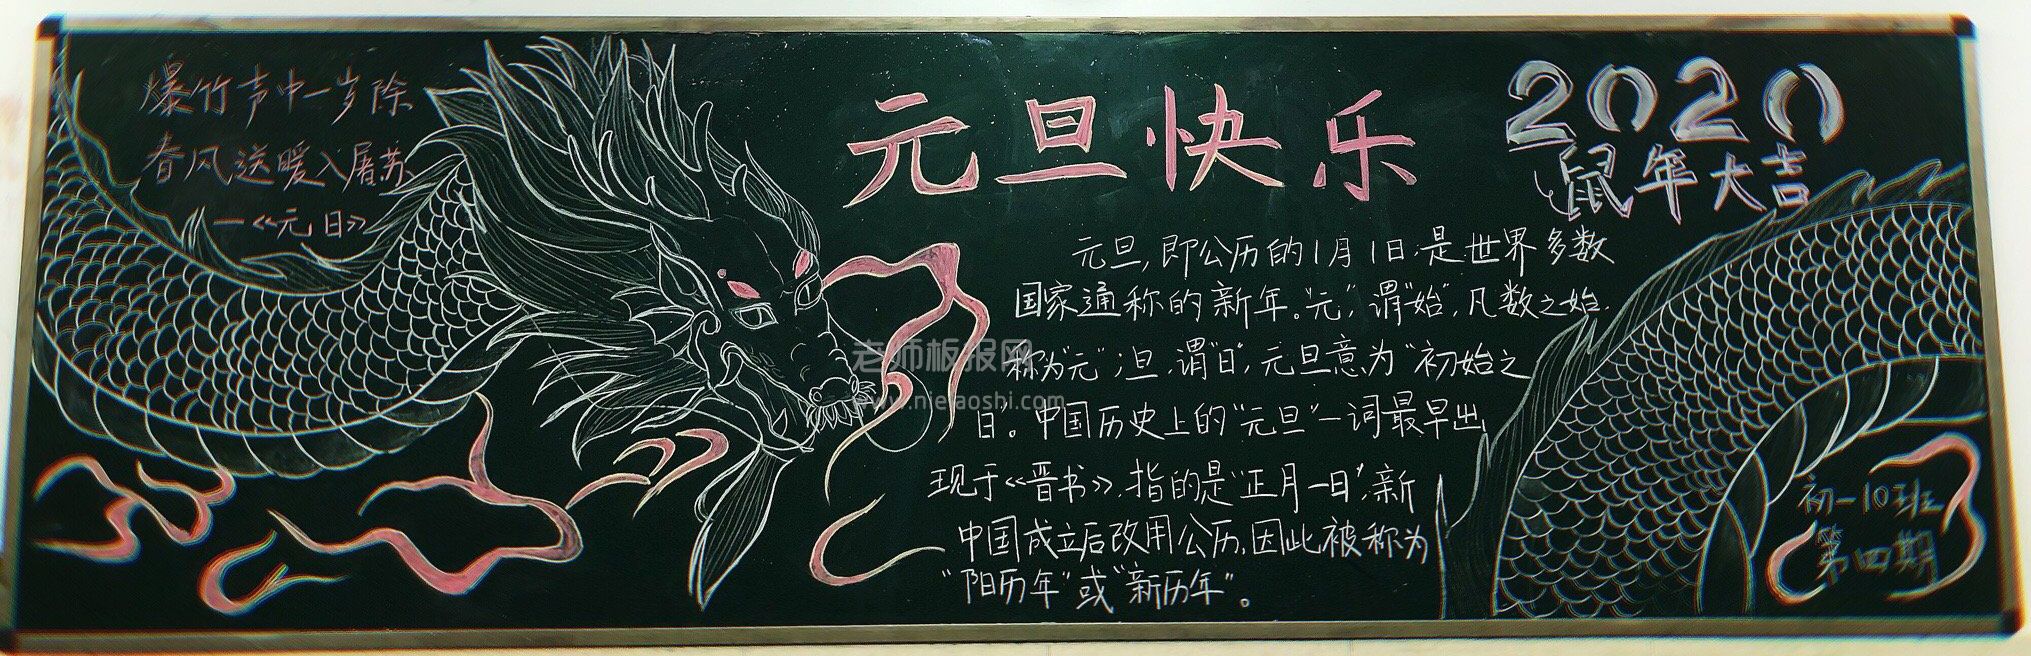 爆竹声中一岁除
春风送暖入屠苏
一《元日》
元旦快乐
2020
鼠年大吉
元旦,即公历的1月1日,是世界多数
国家通称的新年。"元",谓"始",凡数之始,
称为"元";旦,谓"日",元旦意为"初始之
日"。中国历史上的"元旦"一词最早出
现于《晋书》,指的是"正月一日",新
中国成立后改用公历,因此被称为
"阳历年"或"新历年"。
老师板报网
www.nielaoshi.com
初一10班
第四期